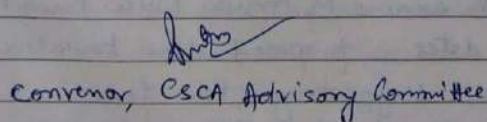 Convenor, CSCA Advisory Committee